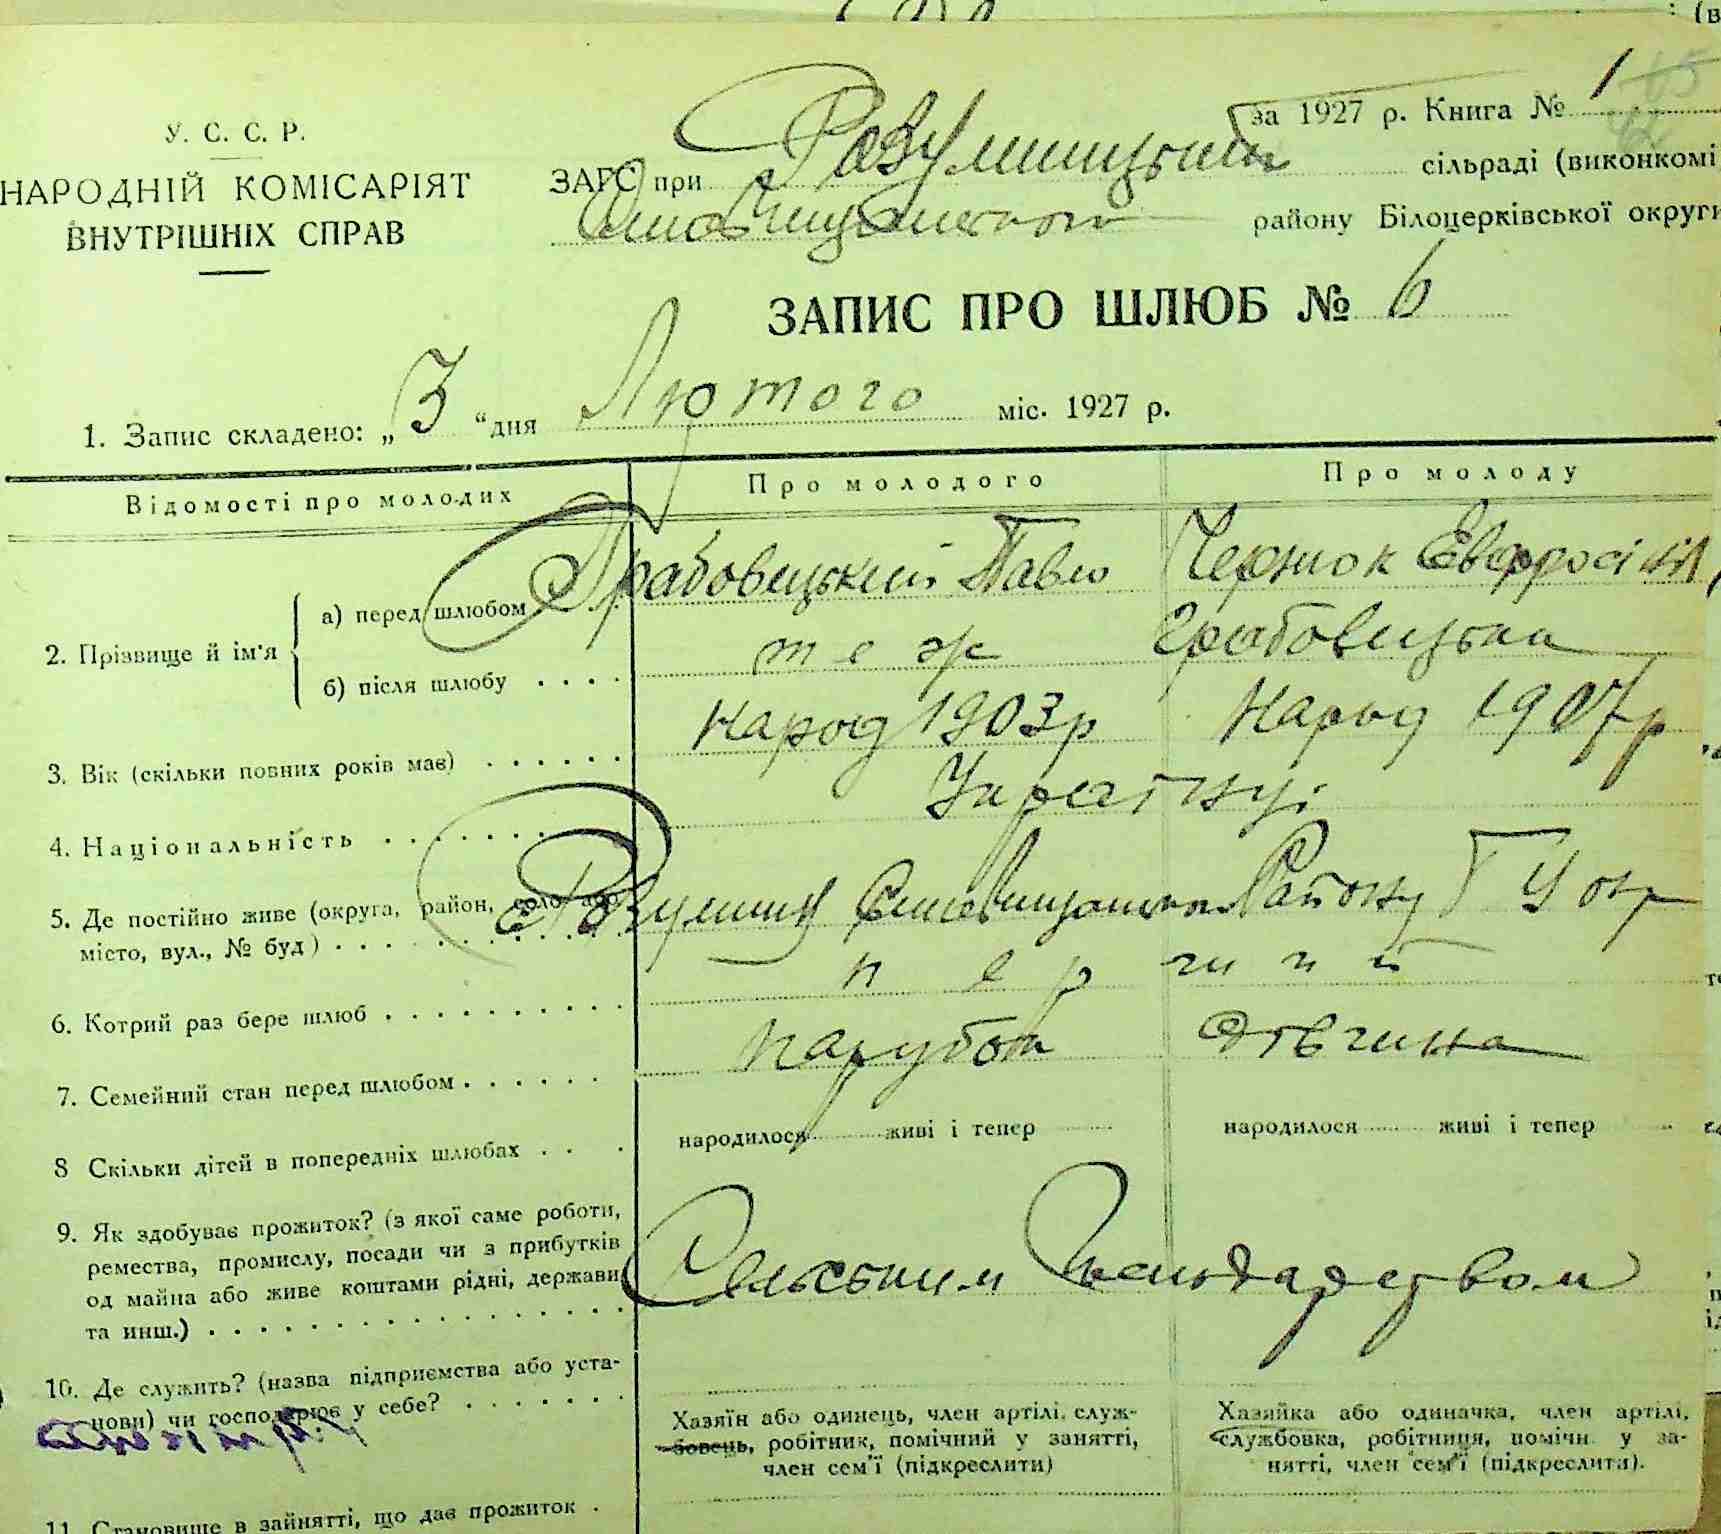 за 1927 р. Книга № 1
У. С. С. Р.
НАРОДНІЙ КОМІСАРІЯТ
ВНУТРІШНІХ СПРАВ
ЗАГС при Розумницькій сільраді (виконкомі
району Білоцерківської округи
ЗАПИС ПРО ШЛЮБ № 6
1. Запис складено: „ 3 “ дня Лютого міс. 1927 р.
Відомості про молодих Про молодого Про молоду
2. Прізвище й ім'я
а) перед шлюбом Грабовецький Павло Чернюк Евфросінія
б) після шлюбу . . . . теж Грабовецька
3. Вік (скільки повних років має) . . . . . . народ 1903 р Народ 1907 р
4. Національність . . . . . . . Українці
5. Де постійно живе (округа, район, село або
місто, вул., № буд) . . . . . . . . . . Району БЦ окр
6. Котрий раз бере шлюб . . . . . . . . . . перший
7. Семейний стан перед шлюбом . . . . . . парубок дівчина
8 Скільки дітей в попередніх шлюбах . . . народилося живі і тепер народилося живі і тепер
9. Як здобуває прожиток? (з якої саме роботи,
ремества, промислу, посади чи з прибутків
од майна або живе коштами рідні, держави
та инш.) . . . . . . . . . . . . . . . Сельським Господарством
10. Де служить? (назва підприємства або уста-
нови) чи господарює у себе? . . . . . . .
Хазяїн або одинець, член артілі, служ-
бовець, робітник, помічний у занятті,
член сем'ї (підкреслити)
Хазяйка або одиначка, член артілі,
службовка, робітниця, помічн. у за-
нятті, член сем'ї (підкреслити).
11. Становище в зайнятті, що дає прожиток .